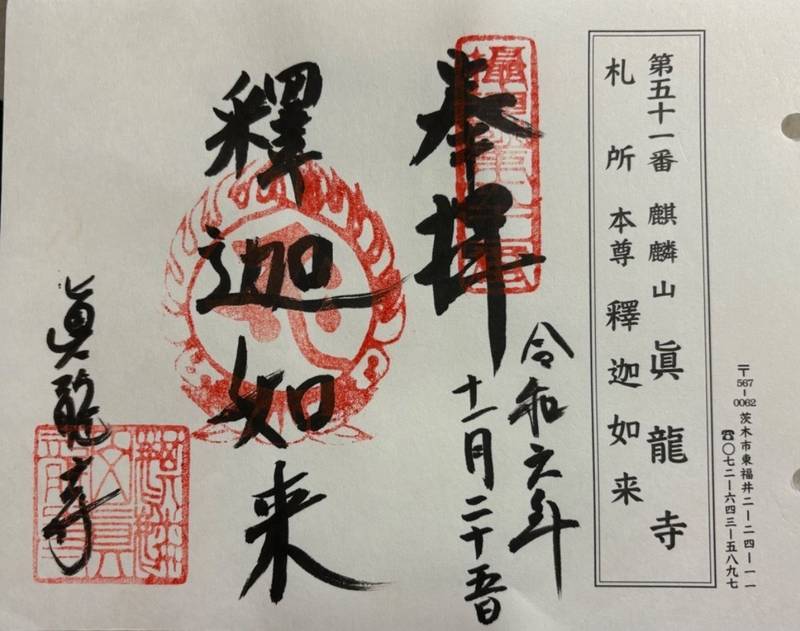 〒567-0062 茨木市東福井二ー二四ー一一
☎〇七二ー六四三ー五八九七
第五十一番 麒麟山 眞龍寺
札所本尊 釋迦如来
奉拝
令和六年
十一月二十五日
釋迦如来
眞龍寺